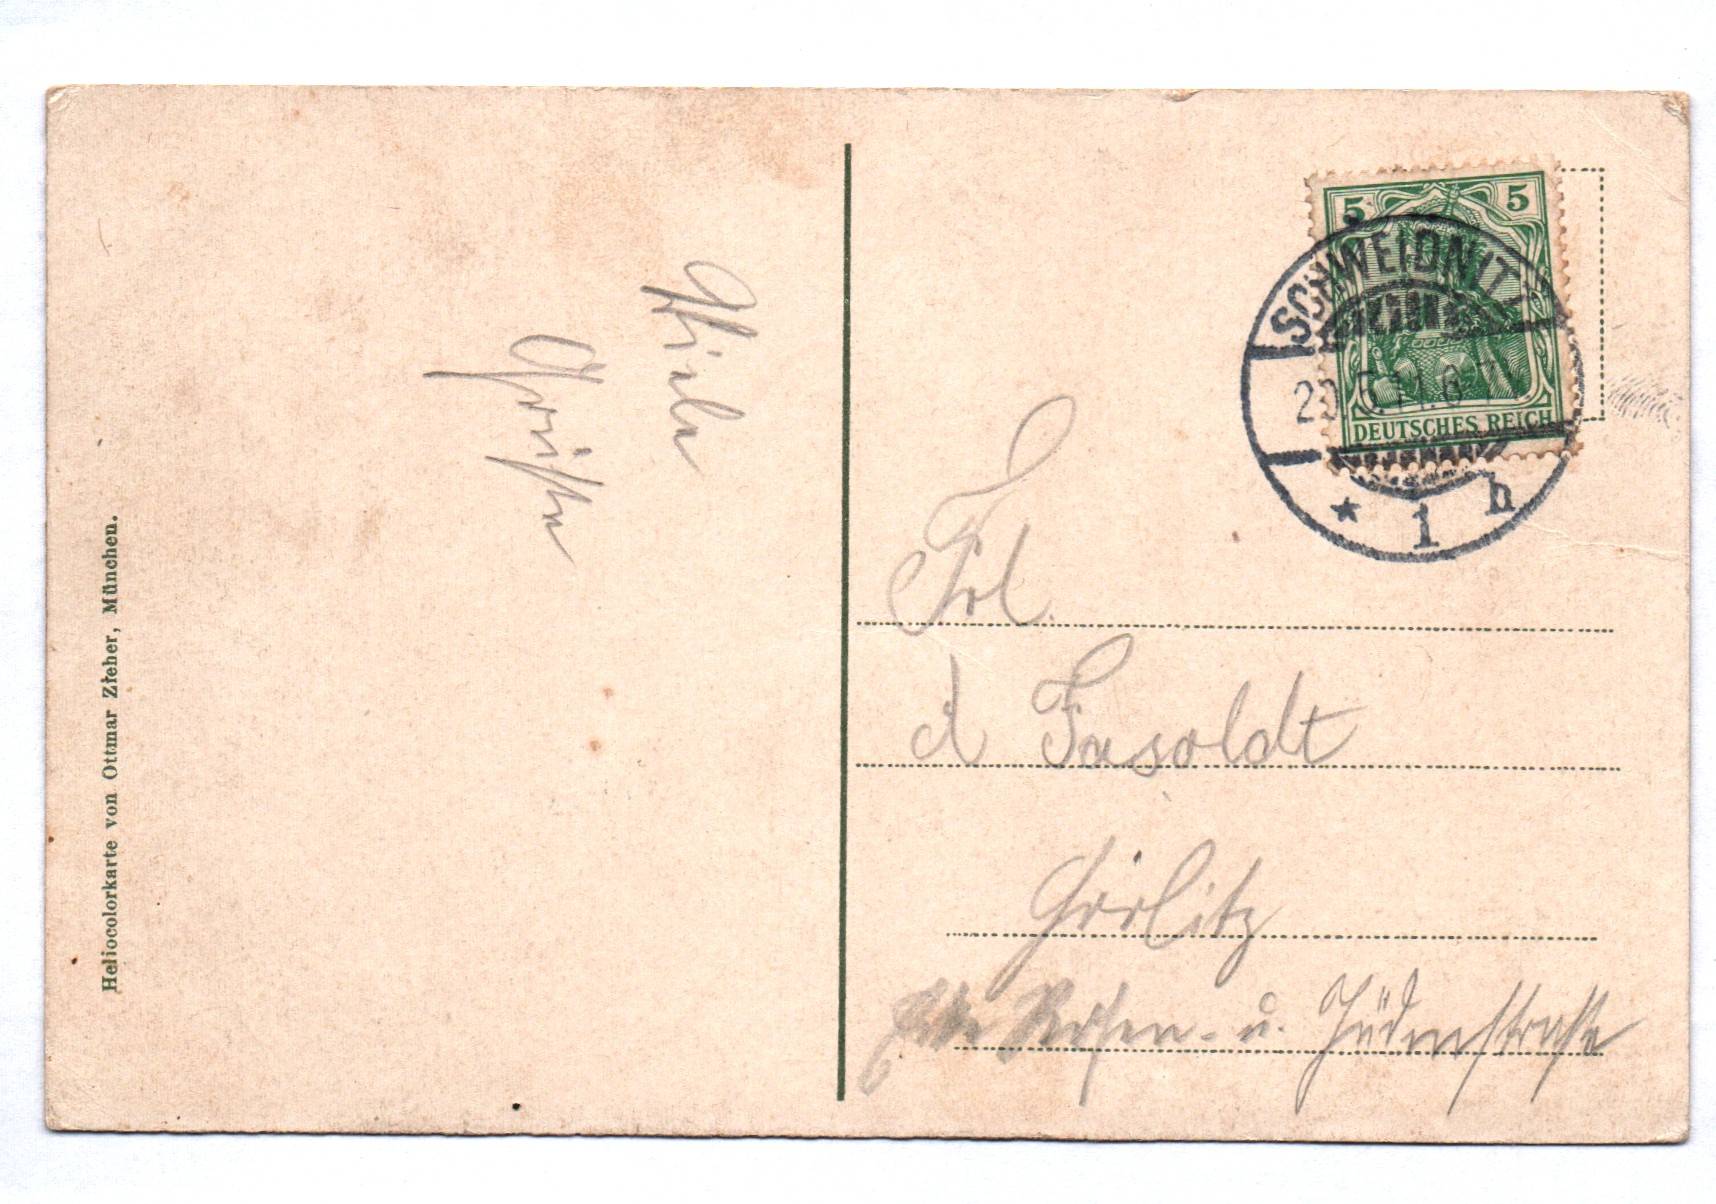 Heliocolorkarte von Ottmar Zieher, München.
Viele
Grüße
5 5
DEUTSCHES REICH
SCHWEIDNITZ
* 1 h
Frl.
d Fasoldt
Görlitz
Ecke Rosen- u. Jüdenstraße